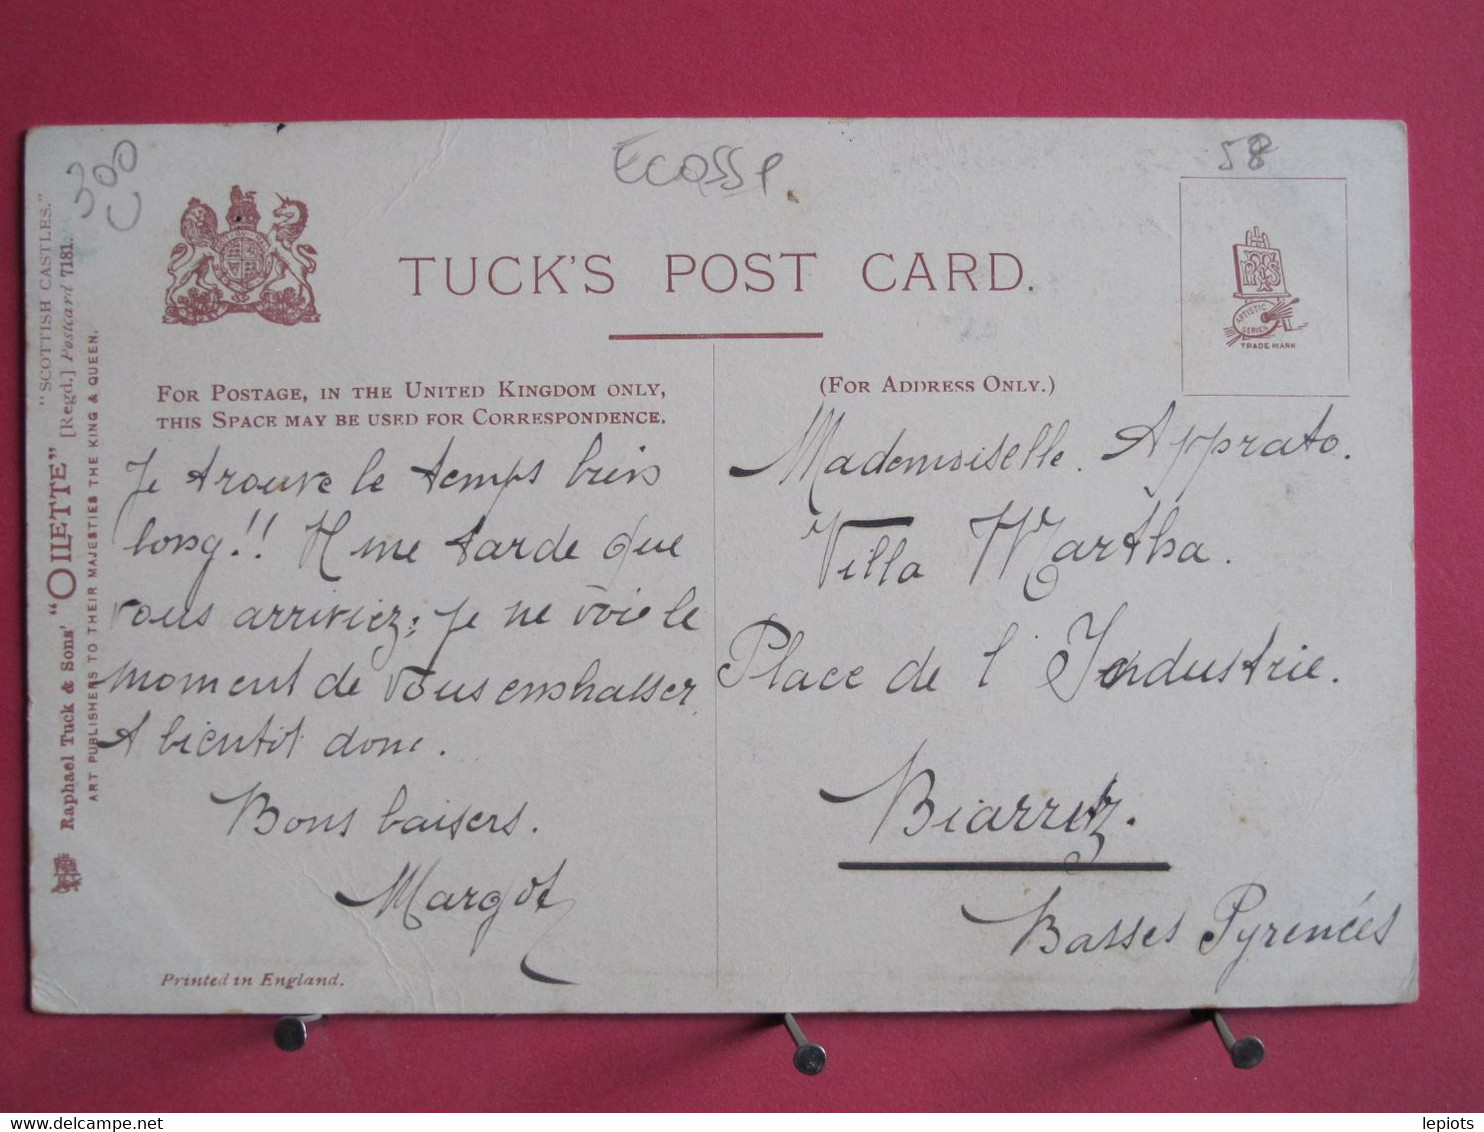 Ecosse
58
300
"SCOTTISH CASTLES."
Raphael Tuck & Sons' "OILETTE" [Regd.] Postcard 7181.
ART PUBLISHERS TO THEIR MAJESTIES THE KING & QUEEN.
TUCK'S POST CARD.
ARTISTIC
SERIES
TRADE MARK
FOR POSTAGE, IN THE UNITED KINGDOM ONLY,
THIS SPACE MAY BE USED FOR CORRESPONDENCE.
(FOR ADDRESS ONLY.)
Je trouve le temps bien
long!! Il me tarde que
vous arriviez; je ne vois le
moment de vous embrasser
A bientôt donc.
Bons baisers.
Margot
Mademoiselle. Apprato.
Villa Martha.
Place de l'Industrie.
Biarritz.
Basses Pyrénées
Printed in England.
lepiots